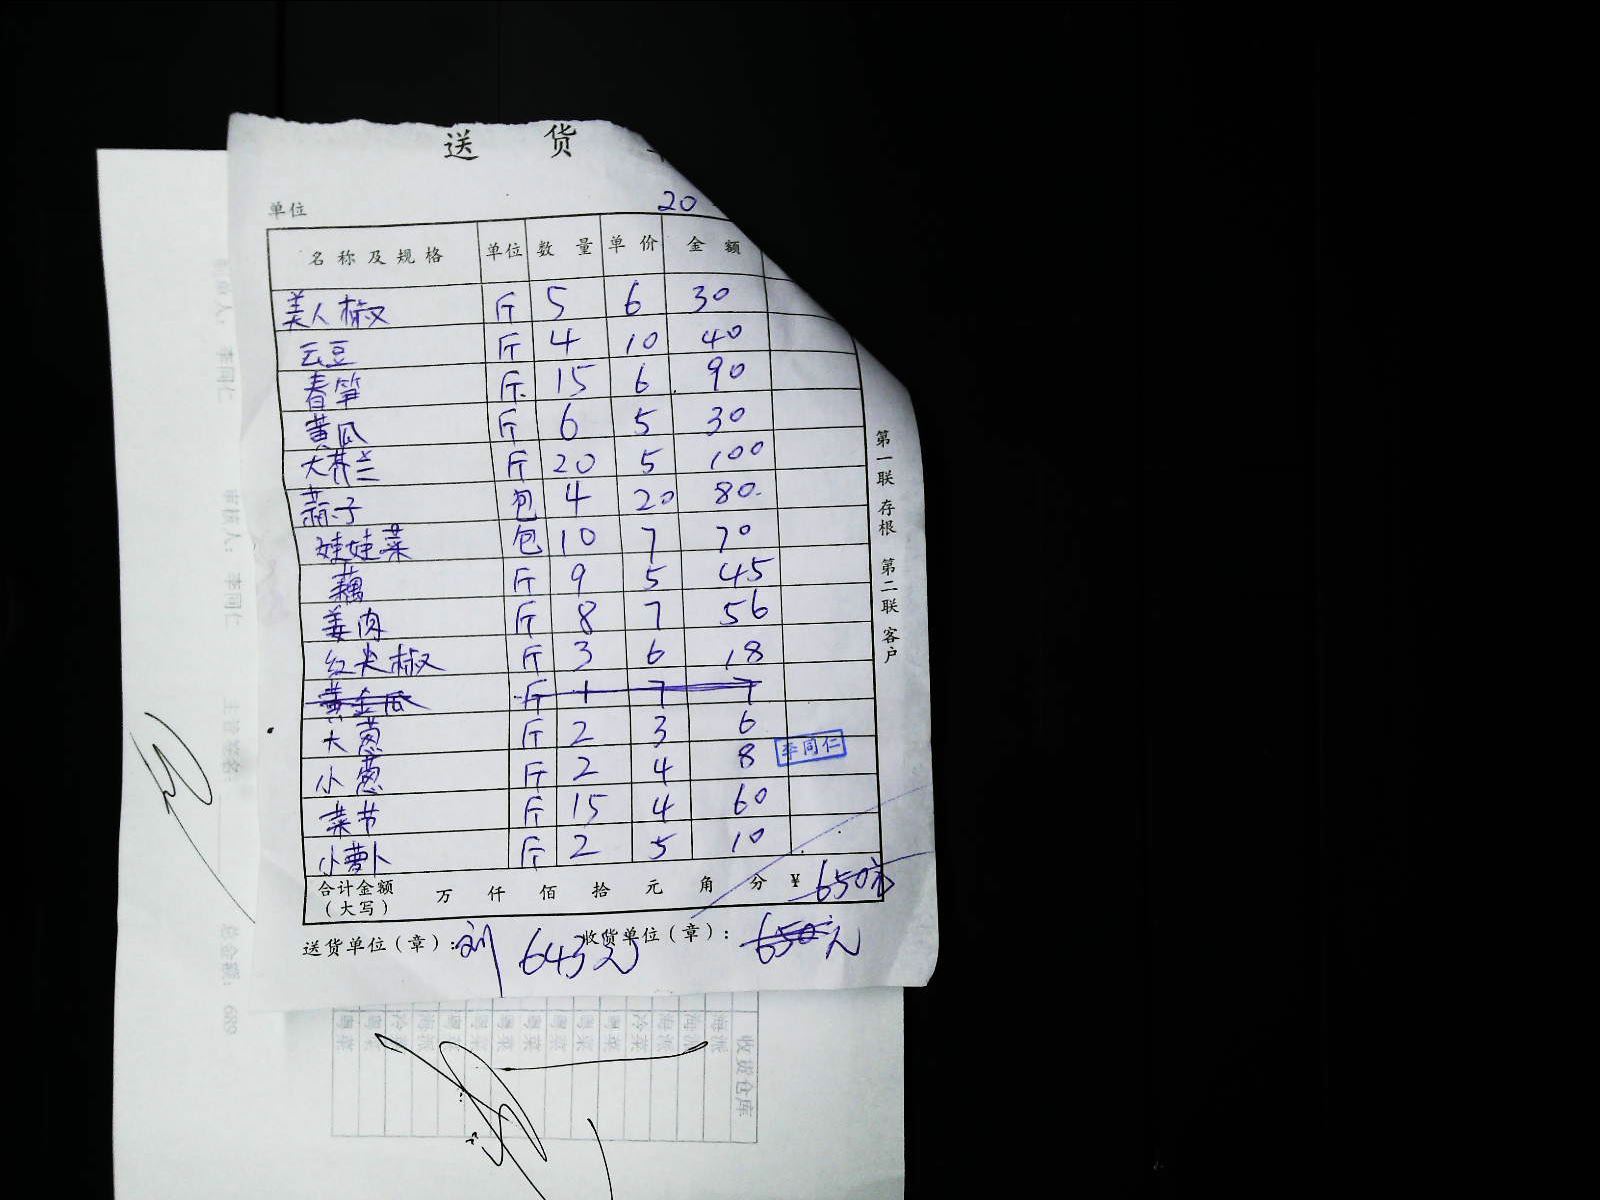 送 货
单位 20
名称及规格 单位 数量 单价 金额
美人椒 斤 5 6 30
云豆 斤 4 10 40
春笋 斤 15 6 90
黄瓜 斤 6 5 30
大芥兰 斤 20 5 100
蒜子 包 4 20 80
娃娃菜 包 10 7 70
藕 斤 9 5 45
姜肉 斤 8 7 56
红尖椒 斤 3 6 18
黄金瓜 斤 1 7 7
大葱 斤 2 3 6
小葱 斤 2 4 8
李同仁
菜节 斤 15 4 60
小萝卜 斤 2 5 10
合计金额(大写) 万 仟 佰 拾 元 角 分 ¥ 650元
送货单位(章): 刘 643元 收货单位(章): 650元
第一联 存根 第二联 客户